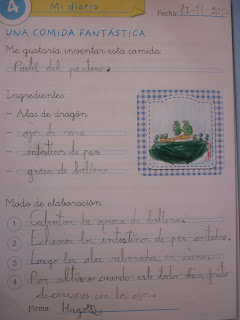 4
Mi diario
Fecha
UNA COMIDA FANTÁSTICA
Me gustaría inventar esta comida:
Pastel del pantano.
Ingredientes:
- Alas de dragón
- ojo de rana
- intestinos de pez
- grasa de ballena
Modo de elaboración:
1 Calentar la grasa de ballena.
2 Echamos los intestinos de pez
3 Luego las alas rebozadas en
4 Por ultimo cuando este todo bien frito
decoramos con los ojos.
Firma: Hugo